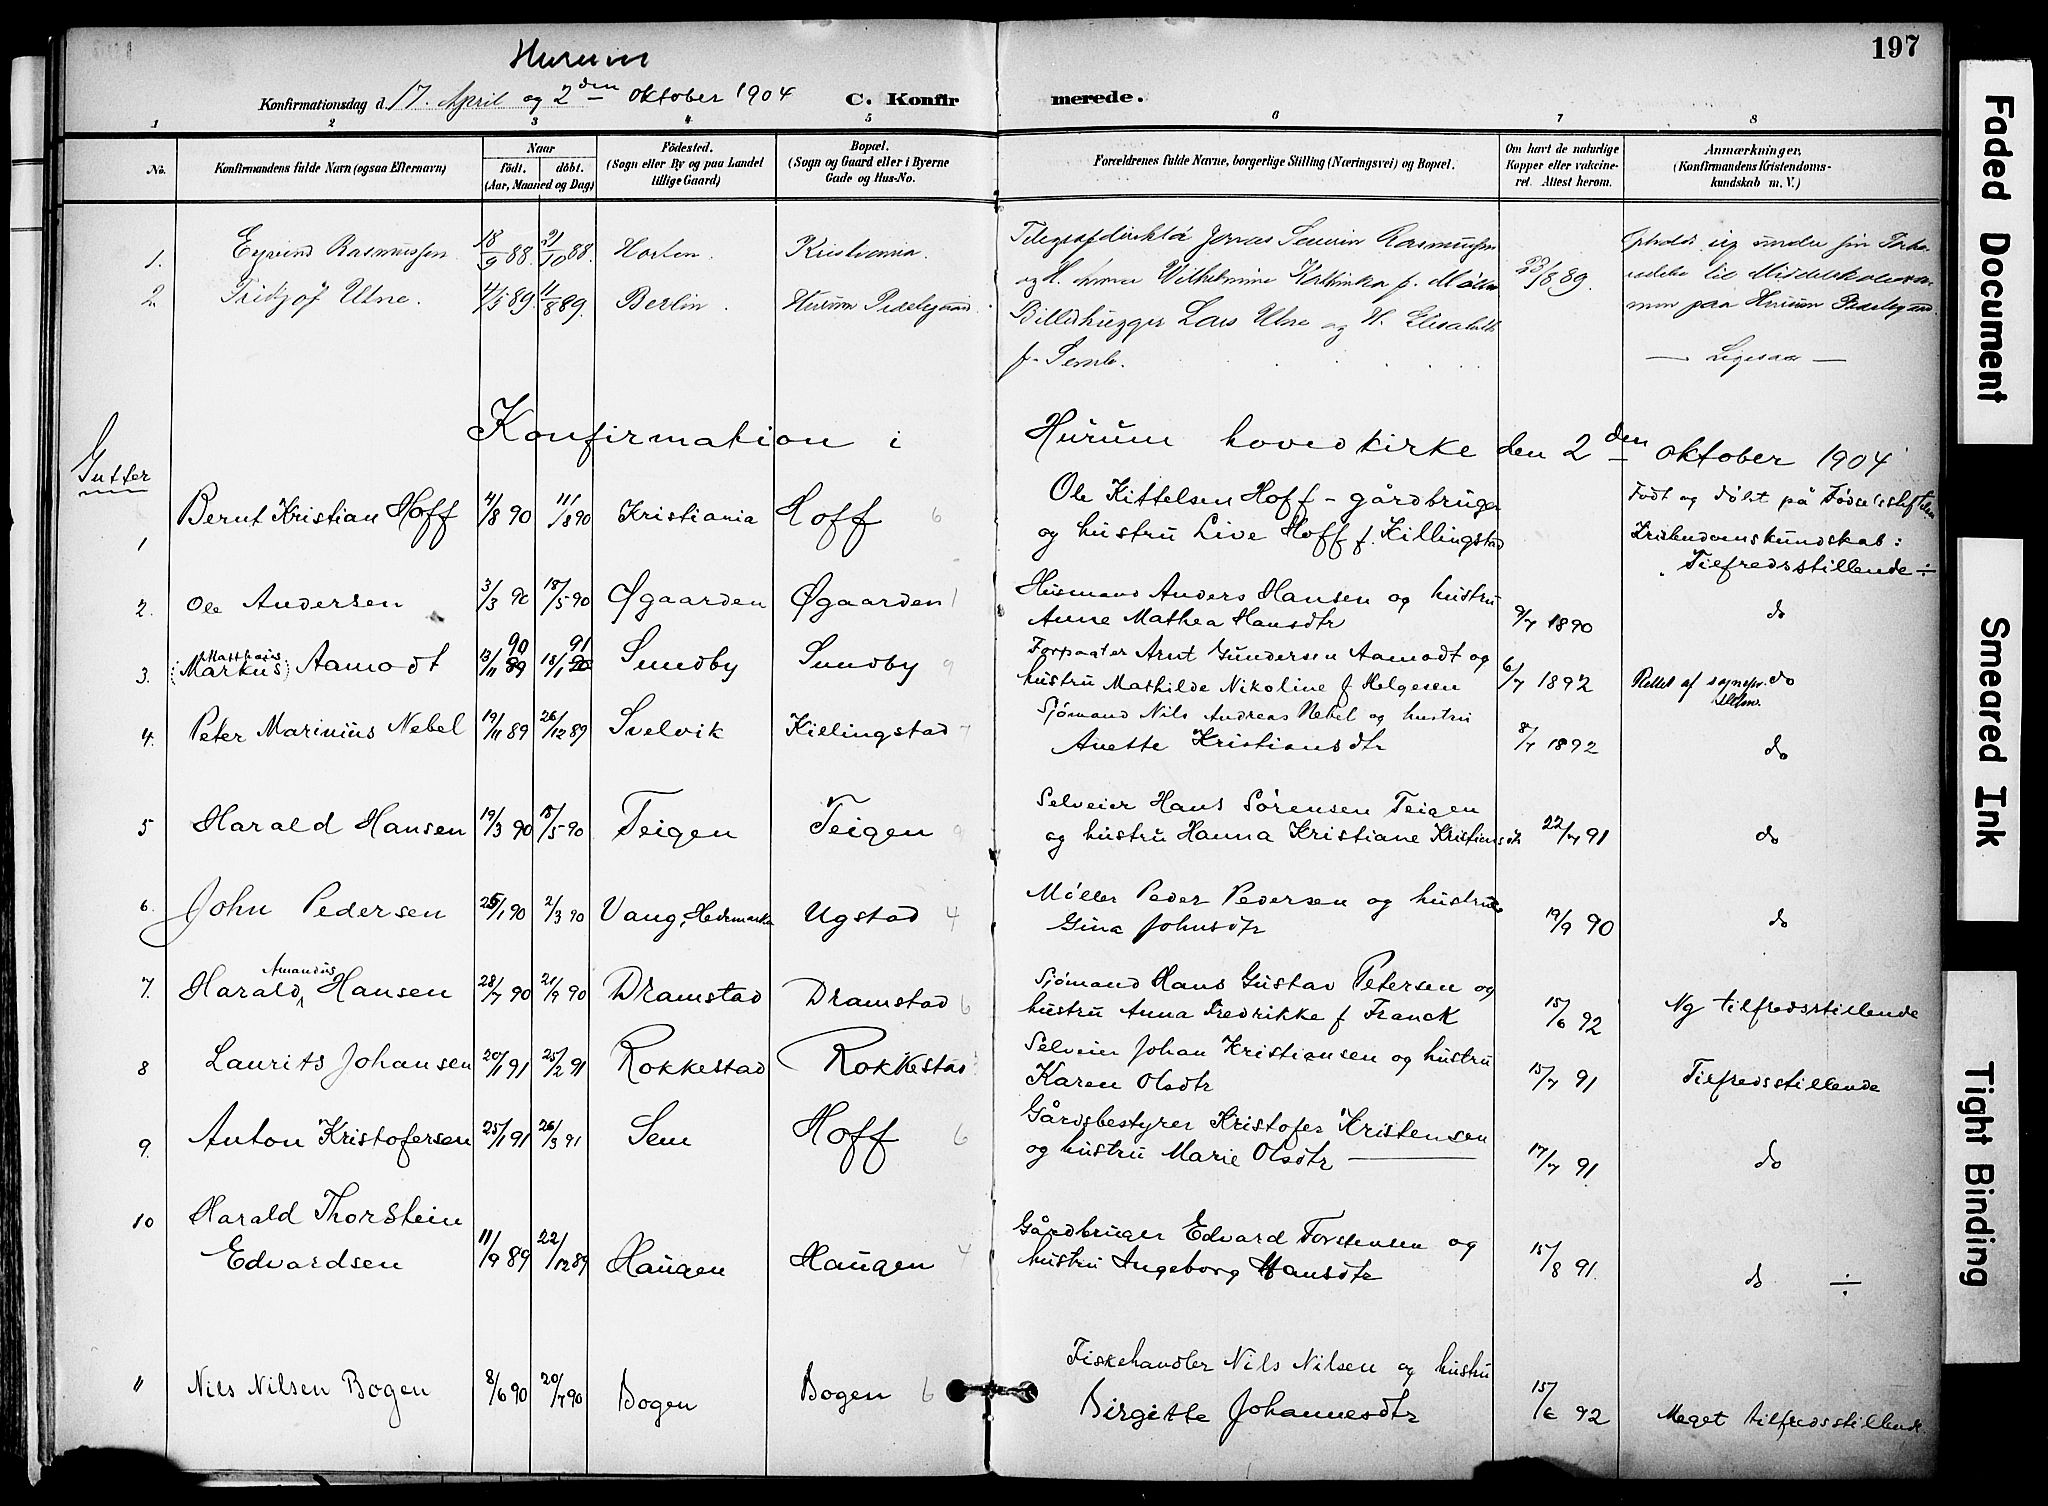 197
Hurum
Konfirmationsdag d. 17. April og 2den oktober 1904 C. Konfirmerede.
1 2 3 4 5 6 7 8
No. Konfirmandens fulde Navn (ogsaa Efternavn) Naar født. døbt. (Aar, Maaned og Dag) Fødested. (Sogn eller By og paa Landet tillige Gaard) Bopæl. (Sogn og Gaard eller i Byerne Gade og Hus-No.) Forældrenes fulde Navne, borgerlige Stilling (Næringsvei) og Bopæl. Om havt de naturlige Kopper eller vakcineret. Attest herom. Anmærkninger, (Konfirmandens Kristendomskundskab m. V.)
1. Eyvind Rasmussen 18/9 88 21/10 88. Horten. Kristiania. Telegrafdirektør Jonas Severin Rasmussen
og H. Wilhelmine Kathinka f. Møller 23/8 89.
2. Fridtjof Utne. 4/5 89. 11/8 89. Berlin. Hurum Prestegaard. Billedhugger Lars Utne og H. Elisabeth
f. Semb. Opholdt sig under sin Forberedelse til Middelskoleexamen paa Hurum Prestegaard.
— Ligesaa —
Konfirmation i Hurum hovedkirke den 2den oktober 1904
Gutter
1 Bernt Kristian Hoff 4/8 90 11/8 90 Kristiania Hoff 6 Ole Kittelsen Hoff - gårdbruger
og hustru Live Hoff f. Killingstad Født og døbt på Fødselsstiftelsen
Kristendomskundskab:
Tilfredsstillende ÷
2. Ole Andersen 3/3 90 18/5 90 Øgaarden Øgaarden 1 Husmand Anders Hansen og hustru
Anne Mathea Hansdtr 9/7 1890 do
3. (Markus) Matthæus Aamodt 13/11 89 90 18/1 90 91 Sundby Sundby 9 Forpagter Arnt Gundersen Aamodt og
hustru Mathilde Nikoline f Helgesen 6/7 1892 Rettet af sognepr. do
4. Peter Marinius Nebel 19/11 89 26/12 89 Svelvik Killingstad 7 Sjømand Nils Andreas Nebel og hustru
Anette Kristiansdtr 8/7 1892 do
5 Harald Hansen 19/3 90 18/5 90 Teigen Teigen 9 Selveier Hans Sørensen Teigen
og hustru Hanna Kristiane Kristiansdtr 22/7 91 do
6. John Pedersen 25/1 90 2/3 90 Vang, Hedemarken Ugstad 4 Møller Peder Pedersen og hustru
Gina Johnsdtr 19/9 90 do
7. Harald Amandus Hansen 28/7 90 21/9 90 Dramstad Dramstad 6 Sjømand Hans Gustav Petersen og
hustru Anna Fredrikke f Franck 15/6 92 Ng tilfredsstillende
8 Laurits Johansen 20/1 91 25/2 91 Rokkestad Rokkestad Selveier Johan Kristiansen og hustru
Karen Olsdtr 15/7 91 Tilfredsstillende
9. Anton Kristofersen 25/1 91 26/3 91 Sem Hoff 6 Gårdsbestyrer Kristofer Kristensen
og hustru Marie Olsdtr 17/7 91 do
10 Harald Thorstein
Edvardsen 11/9 89 22/12 89 Haugen Haugen 4 Gårdbruger Edvard Torstensen og
hustru Ingeborg Hansdtr 15/8 91. do ÷
11 Nils Nilsen Bogen 8/6 90 20/7 90 Bogen Bogen 6 Fiskehandler Nils Nilsen og hustru
Birgitte Johannesdtr 15/6 92 Meget tilfredsstillende
Faded Document
Smeared Ink
Tight Binding